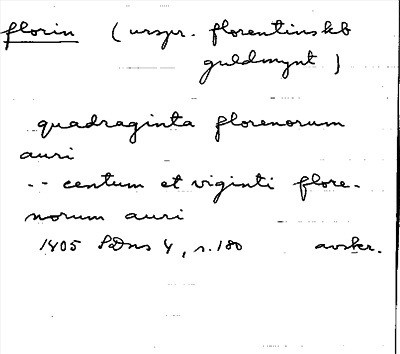 florin (urspr. florentinskt
guldmynt)
quadraginta florenorum
auri
-- centum et viginti flore-
norum auri
1405 SDns 4, s. 180 avskr.